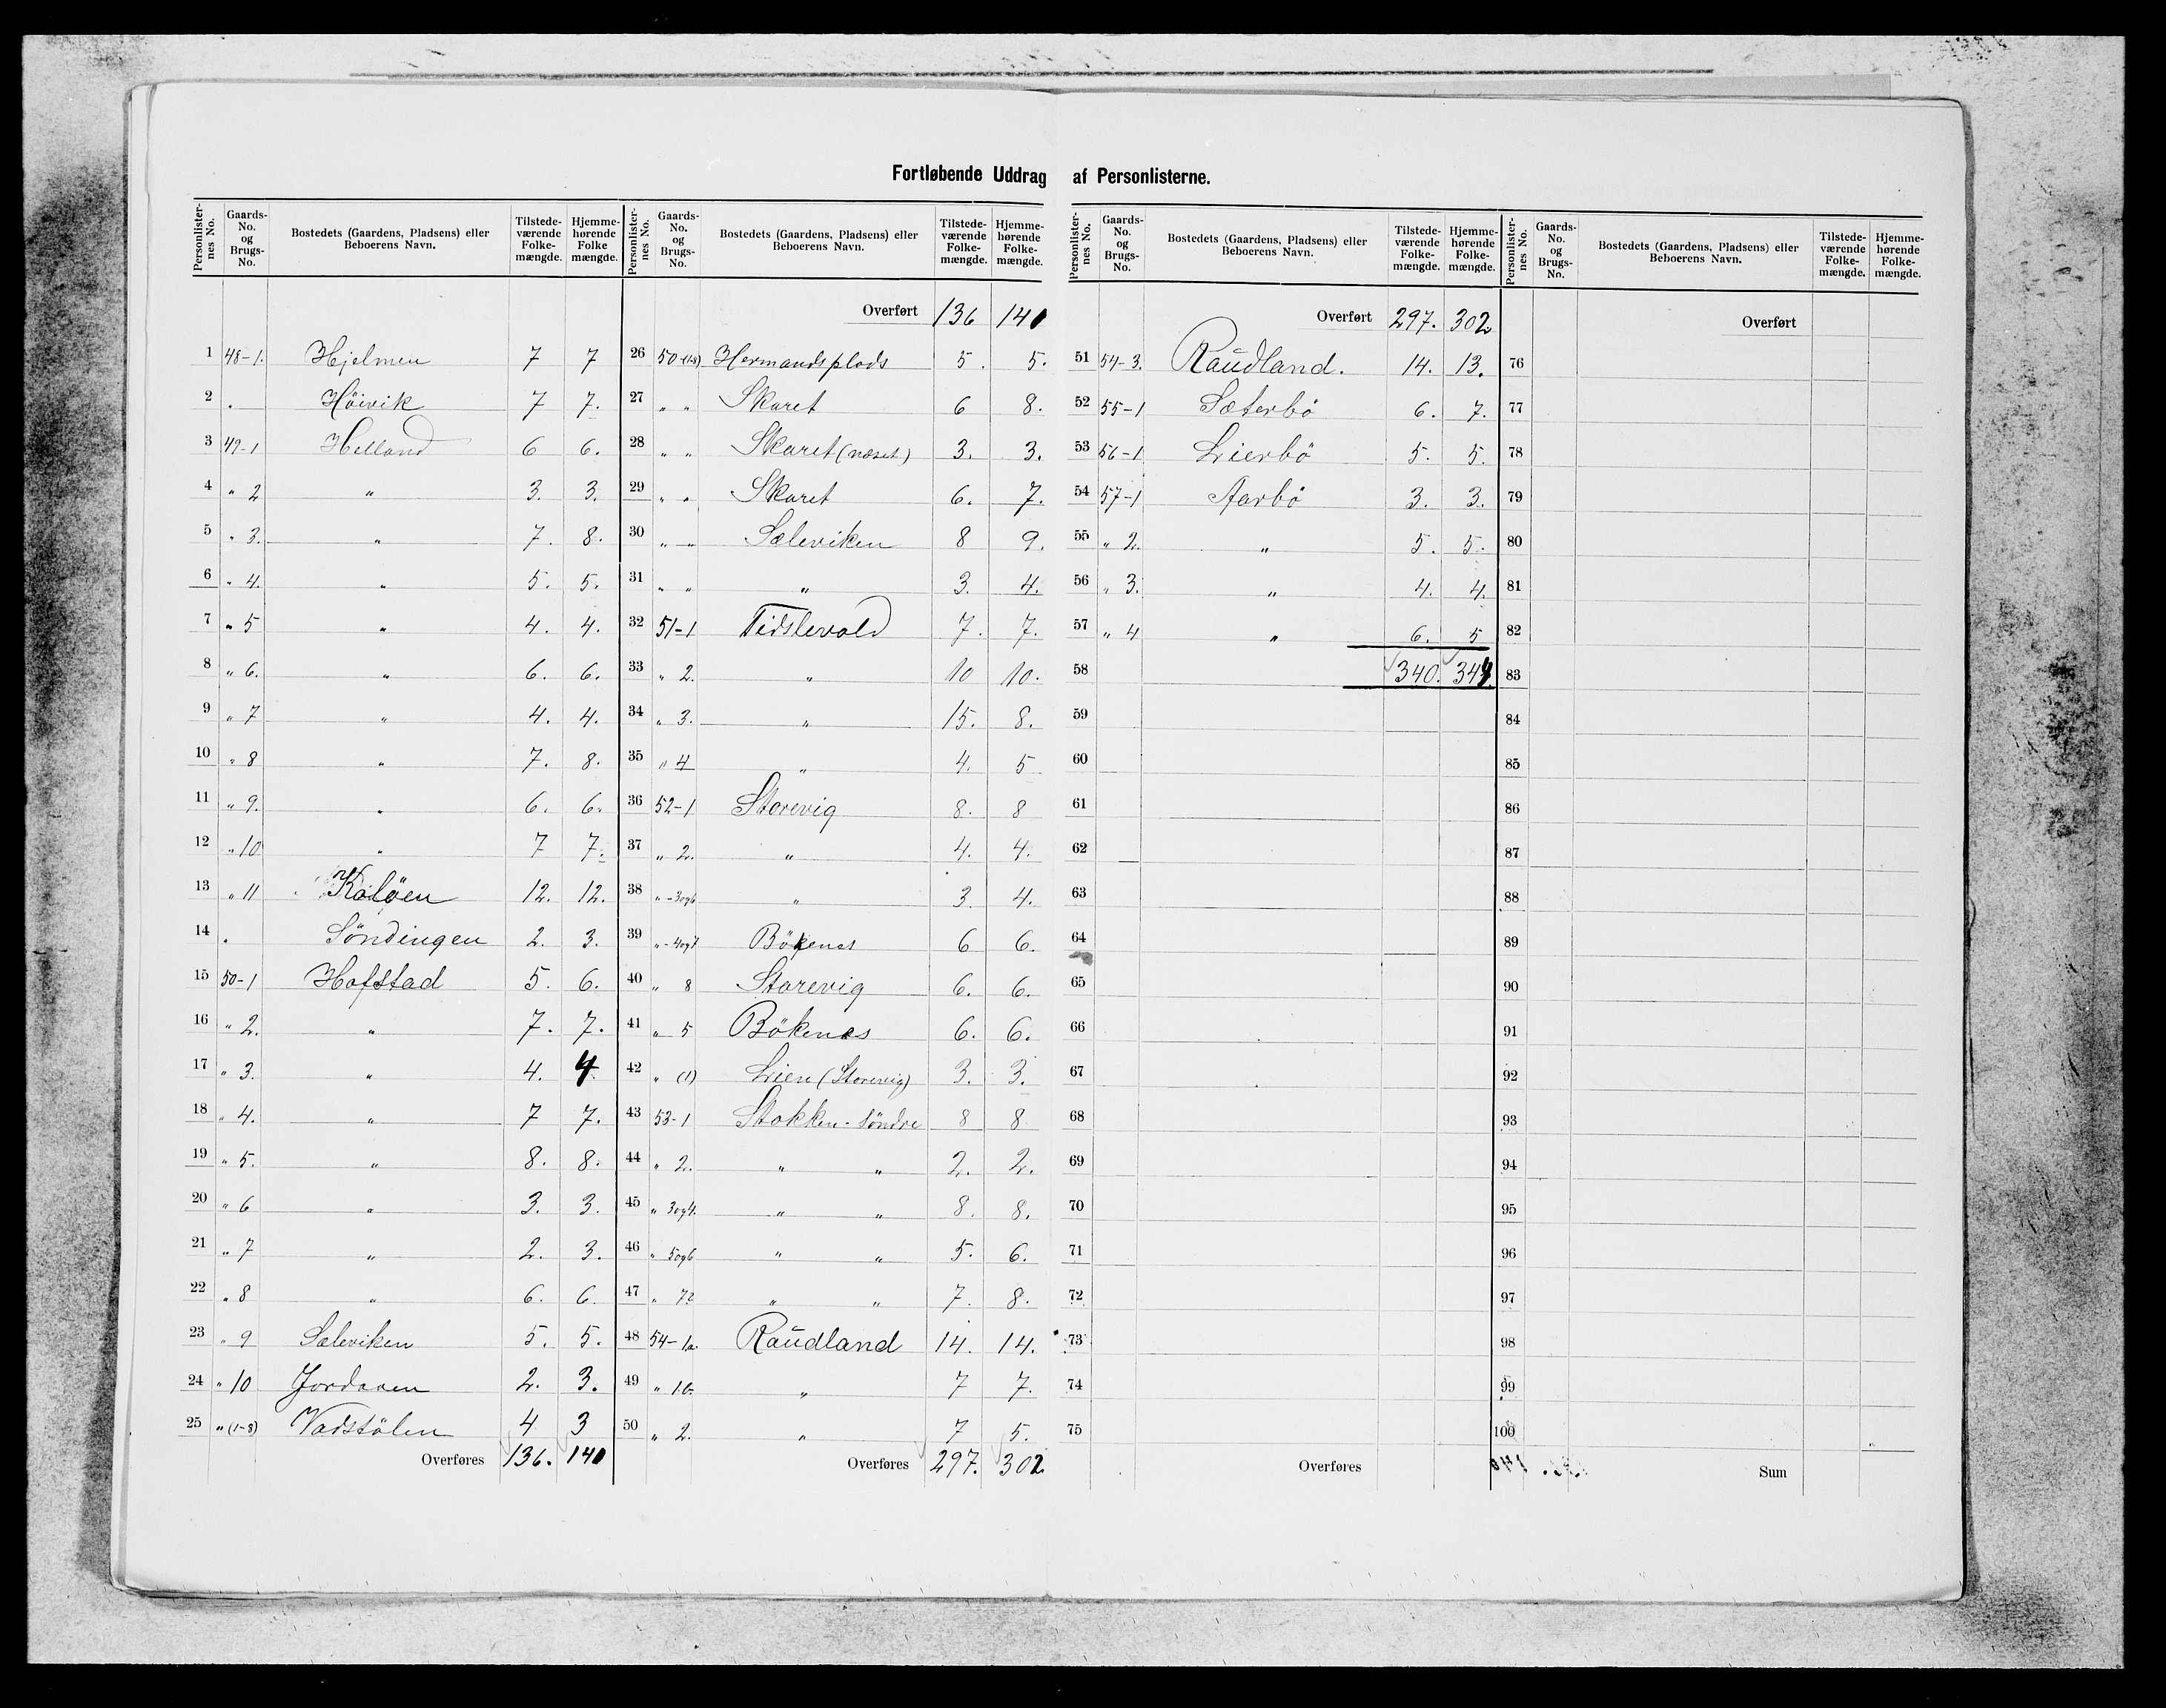 Fortløbende Uddrag af Personlisterne.
Personlister-nes No. Gaards-No. og Brugs-No. Bostedets (Gaardens, Pladsens) eller Beboerens Navn. Tilstede-værende Folke-mængde. Hjemme-hørende Folke mængde.
1 48-1. Hjelmen 7 7
2 " Höivik 7 7.
3 49-1 Helland 6 6.
4 " 2 " 3. 3.
5 " 3. " 7. 8.
6 " 4. " 5. 5.
7 " 5 " 4. 4.
8 " 6. " 6. 6.
9 " 7 " 4. 4.
10 " 8 " 7. 8.
11 " 9. " 6. 6.
12 " 10 " 7 7.
13 " 11 Kalöen 12. 12.
14 " Söndingen 2. 3.
15 50-1 Hofstad 5. 6.
16 " 2. " 7. 7.
17 " 3. " 4. 4.
18 " 4. " 7 7.
19 " 5. " 8. 8.
20 " 6 " 3. 3.
21 " 7 " 2. 3.
22 " 8 " 6. 6.
23 " 9 Sæleviken 5. 5.
24 " 10 Jordaren 2. 3.
25 " (1-8) Vadstölen 4 3
Overføres 136. 140
Personlister-nes No. Gaards-No. og Brugs-No. Bostedets (Gaardens, Pladsens) eller Beboerens Navn. Tilstede-værende Folke-mængde. Hjemme-hørende Folke-mængde.
Overført 136 140
26 50-(1-8) Hermandsplads 5. 5.
27 " " Skaret 6 8.
28 " " Skaret (næset) 3. 3.
29 " " Skaret 6. 7.
30 " " Sæleviken 8 9.
31 " " " 3. 4.
32 51-1 Tidslevold 7. 7.
33 " 2. " 10 10.
34 " 3. " 15. 8.
35 " 4 " 4. 5
36 52-1 Storevig 8. 8
37 " 2. " 4. 4.
38 " -3og6 " 3 4.
39 " -4og7 Bökenes 6 6.
40 " 8 Storevig 6. 6.
41 " 5 Bökenes 6. 6.
42 " (1) Lien (Storevig) 3. 3.
43 53-1 Stokken-Söndre 8 8
44 " 2. " " 2. 2.
45 " 3og4. " " 8. 8.
46 " 5og6 " " 5. 6.
47 " 7 " " 7. 8.
48 54-1a. Raudland 14. 14.
49 " " 7 7.
50 " 2. " 7 5.
Overføres 297. 302
Personlister-nes No. Gaards-No. og Brugs-No. Bostedets (Gaardens, Pladsens) eller Beboerens Navn. Tilstede-værende Folke-mængde. Hjemme-hørende Folke-mængde.
Overført 297. 302
51 54-3. Raudland. 14. 13.
52 55-1 Sæterbö 6. 7.
53 56-1 Lierbö 5. 5.
54 57-1 Aarbö 3. 3.
55 " 2. " 5. 5.
56 " 3. " 4. 4.
57 " 4 " 6. 5
58 340. 344.
59
60
61
62
63
64
65
66
67
68
69
70
71
72
73
74
75
Overføres
Personlister-nes No. Gaards-No. og Brugs-No. Bostedets (Gaardens, Pladsens) eller Beboerens Navn. Tilstede-værende Folke-mængde. Hjemme-hørende Folke-mængde.
Overført
76
77
78
79
80
81
82
83
84
85
86
87
88
89
90
91
92
93
94
95
96
97
98
99
100
Sum